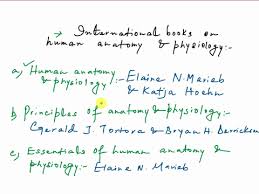 → International books on
human anatomy & physiology:-
a) Human anatomy
& physiology!:- Elaine N. Marieb
& Katja Hoehn
b) Principles of anatomy & physiology:-
Gerald J. Tortora & Bryan H. Derrickson
c) Essentials of human anatomy &
physiology:- Elaine N. Marieb